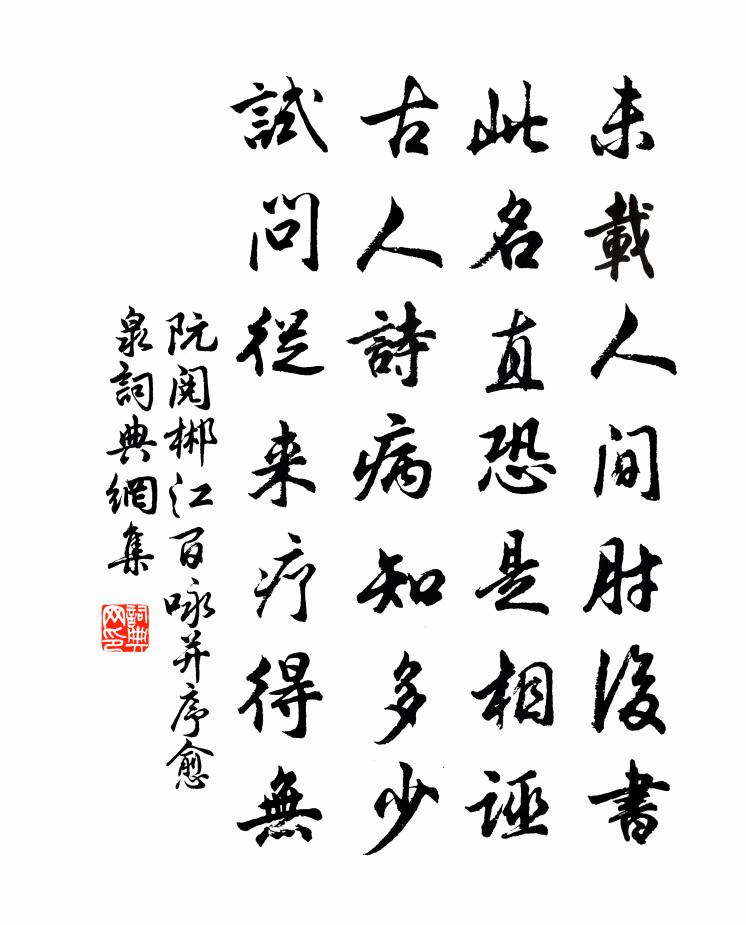 未載人間肘後書
此名直恐是相誣
古人詩病知多少
試問從来疗得無
阮閱郴江百咏并序愈
泉詞典網集
詞典
网印